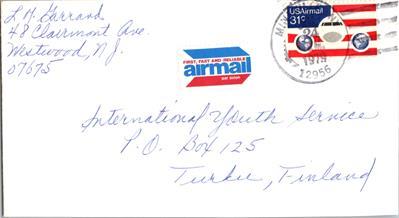 L H Garrand
48 Clairmont Ave
Westwood, N.J.
07675
USAirmail
31c
24
1979
12956
FIRST, FAST AND RELIABLE
airmail
par avion
International Youth Service
P.O. Box 125
Turku, Finland